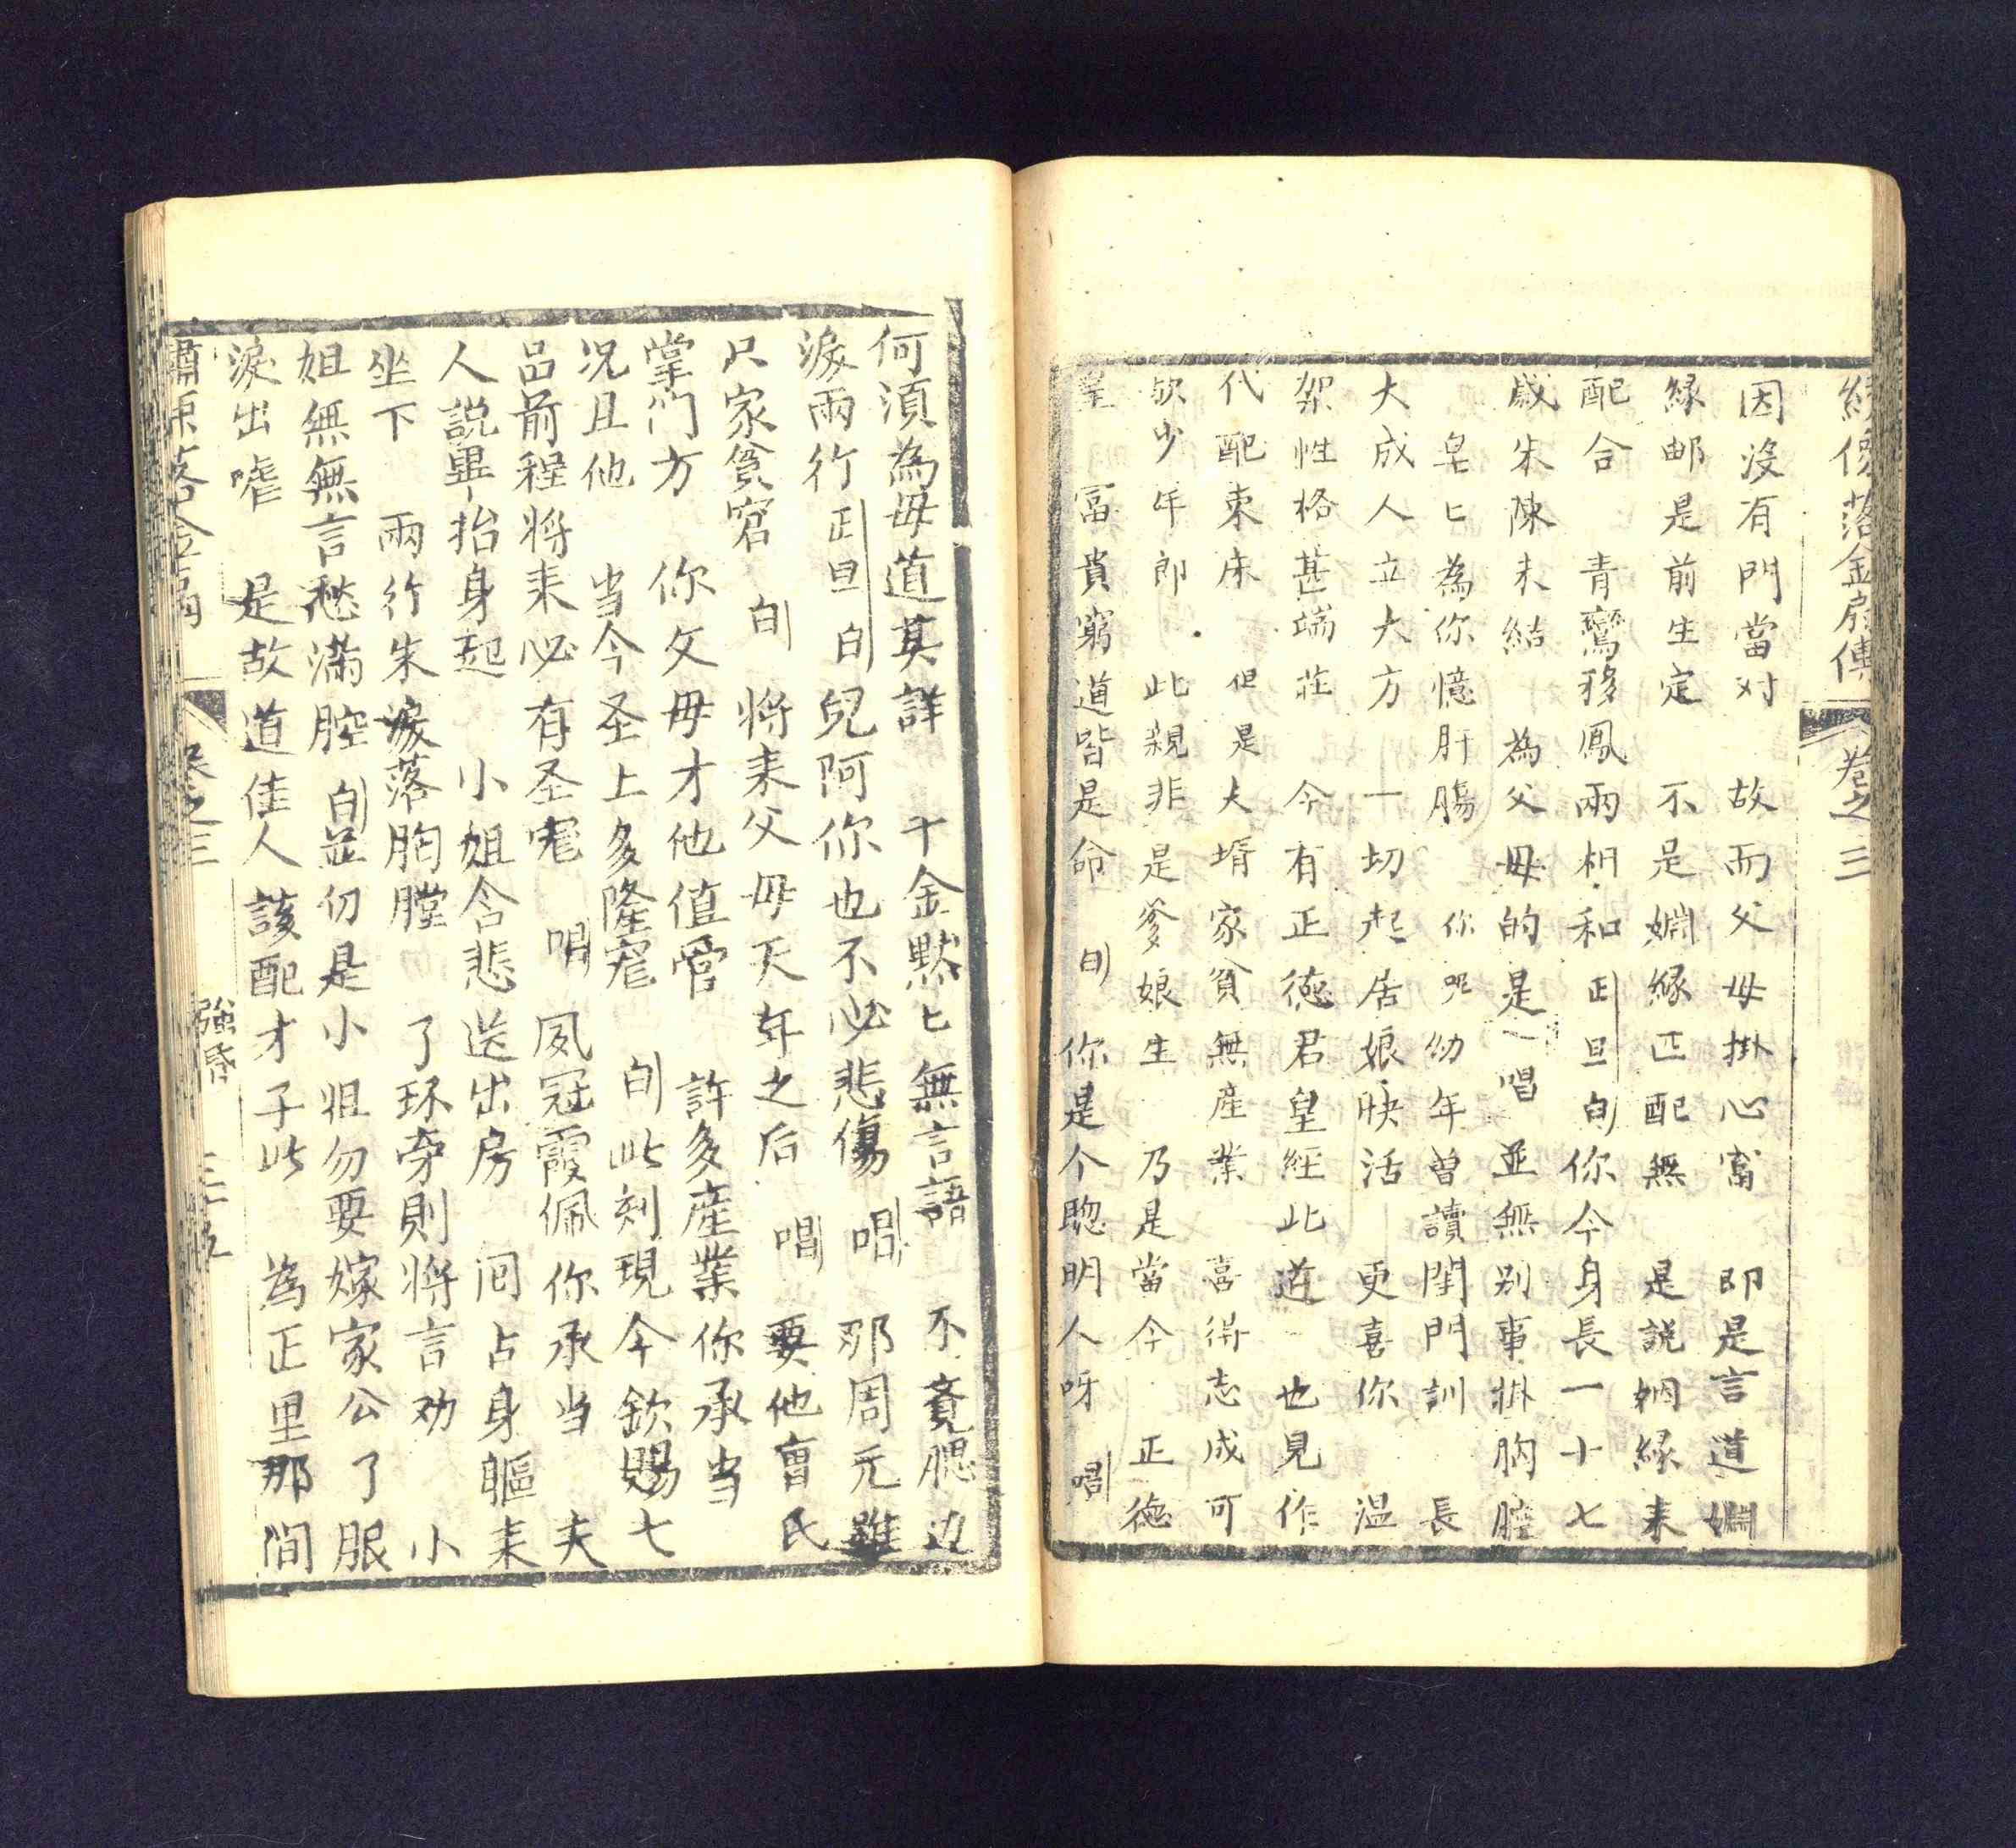 綉像落金扇傳 卷之三
因沒有門當对 故而父母掛心窩 即是言道姻
緣都是前生定 不是姻緣匹配無 是説姻緣耒
配合 青鸞移鳳兩相和 正旦白 你今身長一十七
歲朱陳未結 為父母的是 唱 並無别事掛胸膛
皂匕為你憶肝腸 你呢幼年曾讀閨門訓 長
大成人立大方 一切起居娘快活 更喜你 温
架性格甚端莊 今有正德君皇經此道 也見作
代配東床 但是大壻家貧無産業 喜得志成可
欤少年郎 此親非是爹娘生 乃是當今 正德
皇 冨貴窮道皆是命 白 你是个聰明人呀 唱
何須為毋道其詳 千金黙匕無言語 不竟腮边
淚兩行 正旦白 兒阿你也不必悲傷 唱 那周元雖
只家貧窘 白 将耒父毋天年之后 唱 要他曹氏
掌門方 你父毋才他值膏 許多産業你承当
况且他 当今圣上多隆寵 白 此刻現今欽賜七
品前程将耒必有圣寵 唱 凤冠霞佩你承当 夫
人説畢抬身起 小姐含悲送出房 囘占身軀耒
坐下 兩行朱淚落胸膛 了环旁則将言劝 小
姐無無言愁滿腔 白 並仞是小姐勿要嫁家公了服
淚出嗻 是故道佳人該配才子此 為正里那間
落金扇 卷之三 強婚